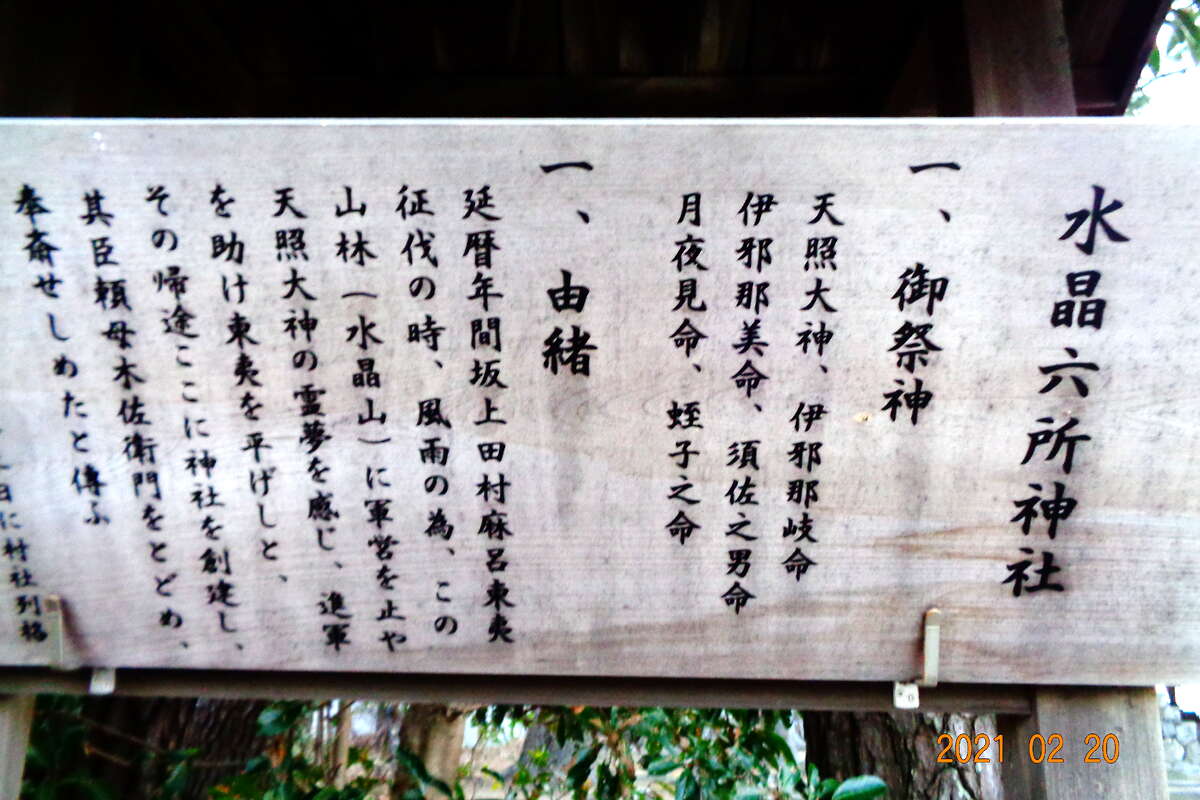 水晶六所神社
一、御祭神
天照大神、伊邪那岐命
伊邪那美命、須佐之男命
月夜見命、蛭子之命
一、由緒
延暦年間坂上田村麻呂東夷
征伐の時、風雨の為、この
山林(水晶山)に軍営を止や
天照大神の霊夢を感じ、進軍
を助け東夷を平げしと、
その帰途ここに神社を創建し、
其臣頼母木佐衛門をとどめ、
奉斎せしめたと傳ふ
日に村社列格
2021 02 20